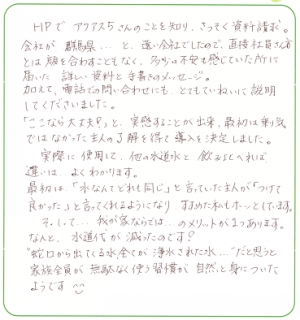 HPで アクアス5さんのことを知り、さっそく資料請求。
会社が 群馬県…と、遠い会社でしたので、直接社員さん方
とは顔を合わすこともなく、多少の不安も感じていた所に
届いた 詳しい資料と手書きのメッセージ。
加えて、電話での問い合わせにも、とてもていねいに説明
してくださいました。
「ここなら大丈夫」と、実感することが出来、最初は乗り気
ではなかった主人の了解を得て導入を決定しました。
実際に 使用して、他の水道水と 飲み比べれば
違いは よくわかります。
最初は、「水なんてどれも同じ」と言っていた主人が「つけて
良かった」と言ってくれるようになり、すすめた私もホッとしています。
そして… 我が家ならでは…のメリットが1つあります。
なんと、水道代が 減ったのです?
"蛇口から出てくる水全てが 浄水された水…"だと思うと
家族全員が 無駄なく使う習慣が 自然と身についた
ようです